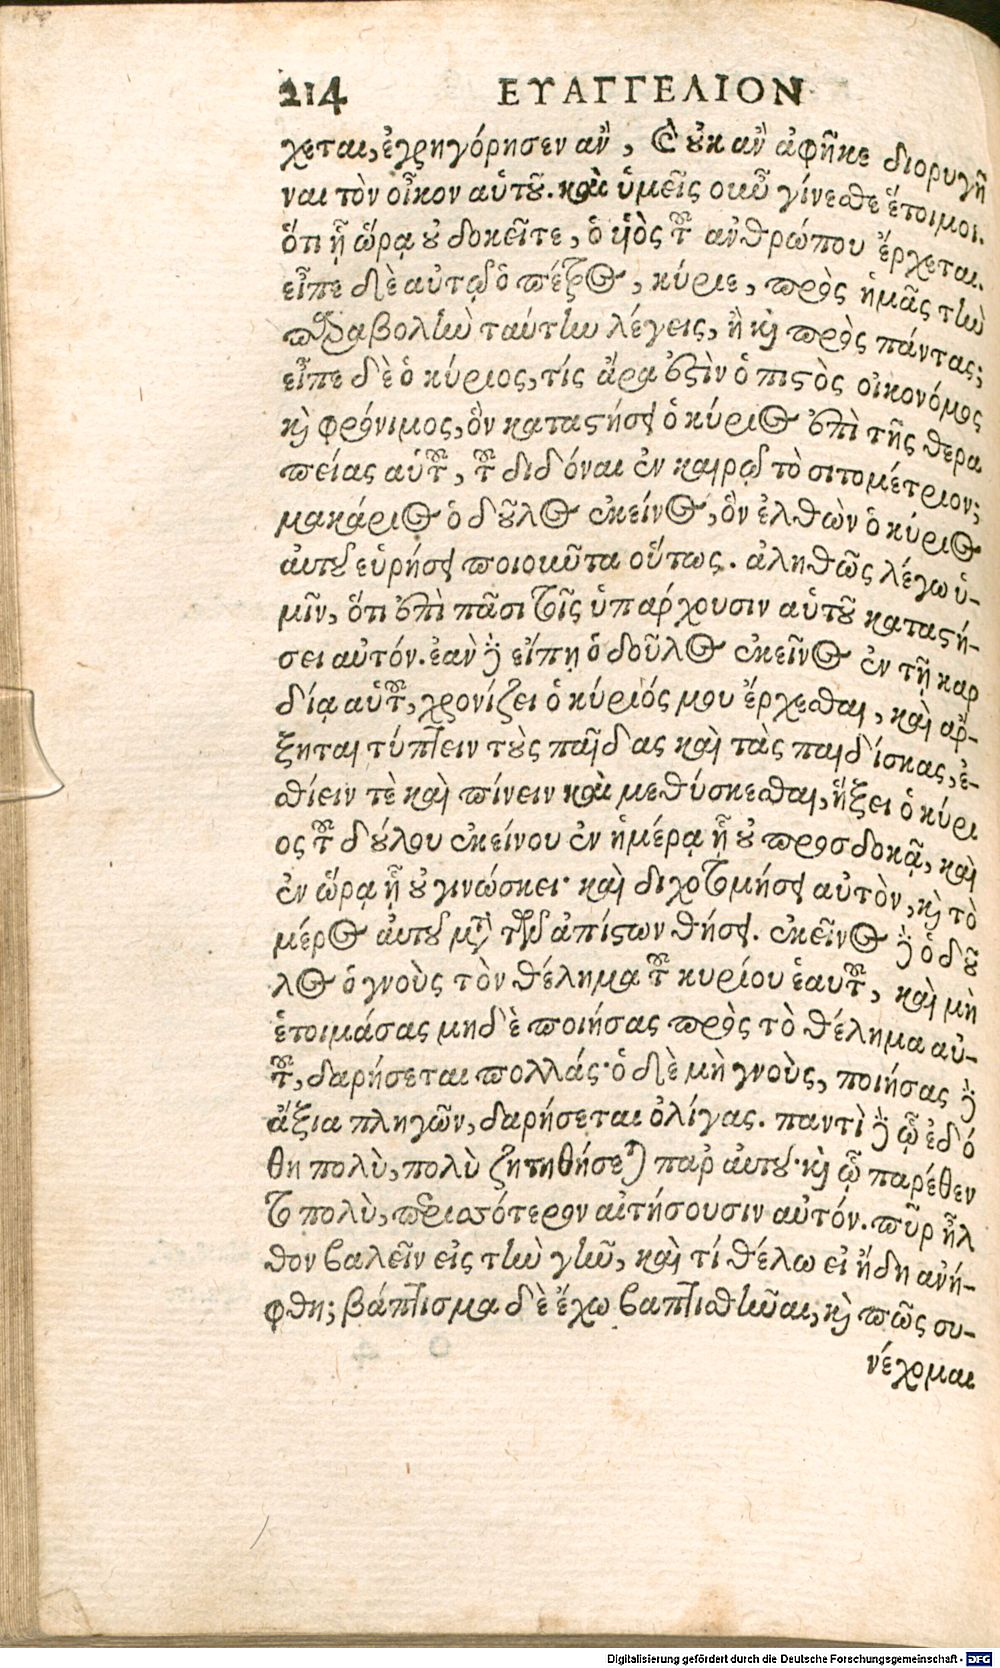 214 ΕΥΑΓΓΕΛΙΟΝ
χεται, ἐγρηγόρησεν ἂν, καὶ οὐκ ἂν ἀφῆκε διορυγῆ
ναι τὸν οἶκον αὑτοῦ. καὶ ὑμεῖς οὖν γίνεσθε ἕτοιμοι.
ὅτι ᾗ ὥρᾳ οὐ δοκεῖτε, ὁ υἱὸς τοῦ ἀνθρώπου ἔρχεται.
εἶπε δὲ αὐτῷ ὁ πέτρος, κύριε, πρὸς ἡμᾶς τὴν
παραβολὴν ταύτην λέγεις, ἢ καὶ πρὸς πάντας;
εἶπε δὲ ὁ κύριος, τίς ἄρα ἐστὶν ὁ πιστὸς οἰκονόμος
καὶ φρόνιμος, ὃν καταστήσει ὁ κύριος ἐπὶ τῆς θερα
πείας αὑτοῦ, τοῦ διδόναι ἐν καιρῷ τὸ σιτομέτριον;
μακάριος ὁ δοῦλος ἐκεῖνος, ὃν ἐλθὼν ὁ κύριος
αὐτοῦ εὑρήσει ποιοῦντα οὕτως. ἀληθῶς λέγω ὑ-
μῖν, ὅτι ἐπὶ πᾶσι τοῖς ὑπάρχουσιν αὑτοῦ καταστή-
σει αὐτόν. ἐὰν δὲ εἴπῃ ὁ δοῦλος ἐκεῖνος ἐν τῇ καρ
δίᾳ αὑτοῦ, χρονίζει ὁ κύριός μου ἔρχεσθαι, καὶ ἄρ-
ξηται τύπτειν τοὺς παῖδας καὶ τὰς παιδίσκας, ἐ-
σθίειν τὲ καὶ πίνειν καὶ μεθύσκεσθαι, ἥξει ὁ κύρι
ος τοῦ δούλου ἐκείνου ἐν ἡμέρᾳ ᾗ οὐ προσδοκᾷ, καὶ
ἐν ὥρᾳ ᾗ οὐ γινώσκει· καὶ διχοτομήσει αὐτὸν, καὶ τὸ
μέρος αὐτοῦ μετὰ τῶν ἀπίστων θήσει. ἐκεῖνος δὲ ὁ δοῦ
λος ὁ γνοὺς τὸν θέλημα τοῦ κυρίου ἑαυτοῦ, καὶ μὴ
ἑτοιμάσας μηδὲ ποιήσας πρὸς τὸ θέλημα αὐ-
τοῦ, δαρήσεται πολλάς· ὁ δὲ μὴ γνοὺς, ποιήσας δὲ
ἄξια πληγῶν, δαρήσεται ὀλίγας. παντὶ δὲ ᾧ ἐδό
θη πολὺ, πολὺ ζητηθήσεται παρ αὐτοῦ· καὶ ᾧ παρέθεν
το πολὺ, περισσότερον αἰτήσουσιν αὐτόν. πῦρ ἦλ
θον βαλεῖν εἰς τὴν γῆν, καὶ τί θέλω εἰ ἤδη ἀνή-
φθη; βάπτισμα δὲ ἔχω βαπτισθῆναι, καὶ πῶς συ-
νέχομαι
Digitalisierung gefördert durch die Deutsche Forschungsgemeinschaft - DFG